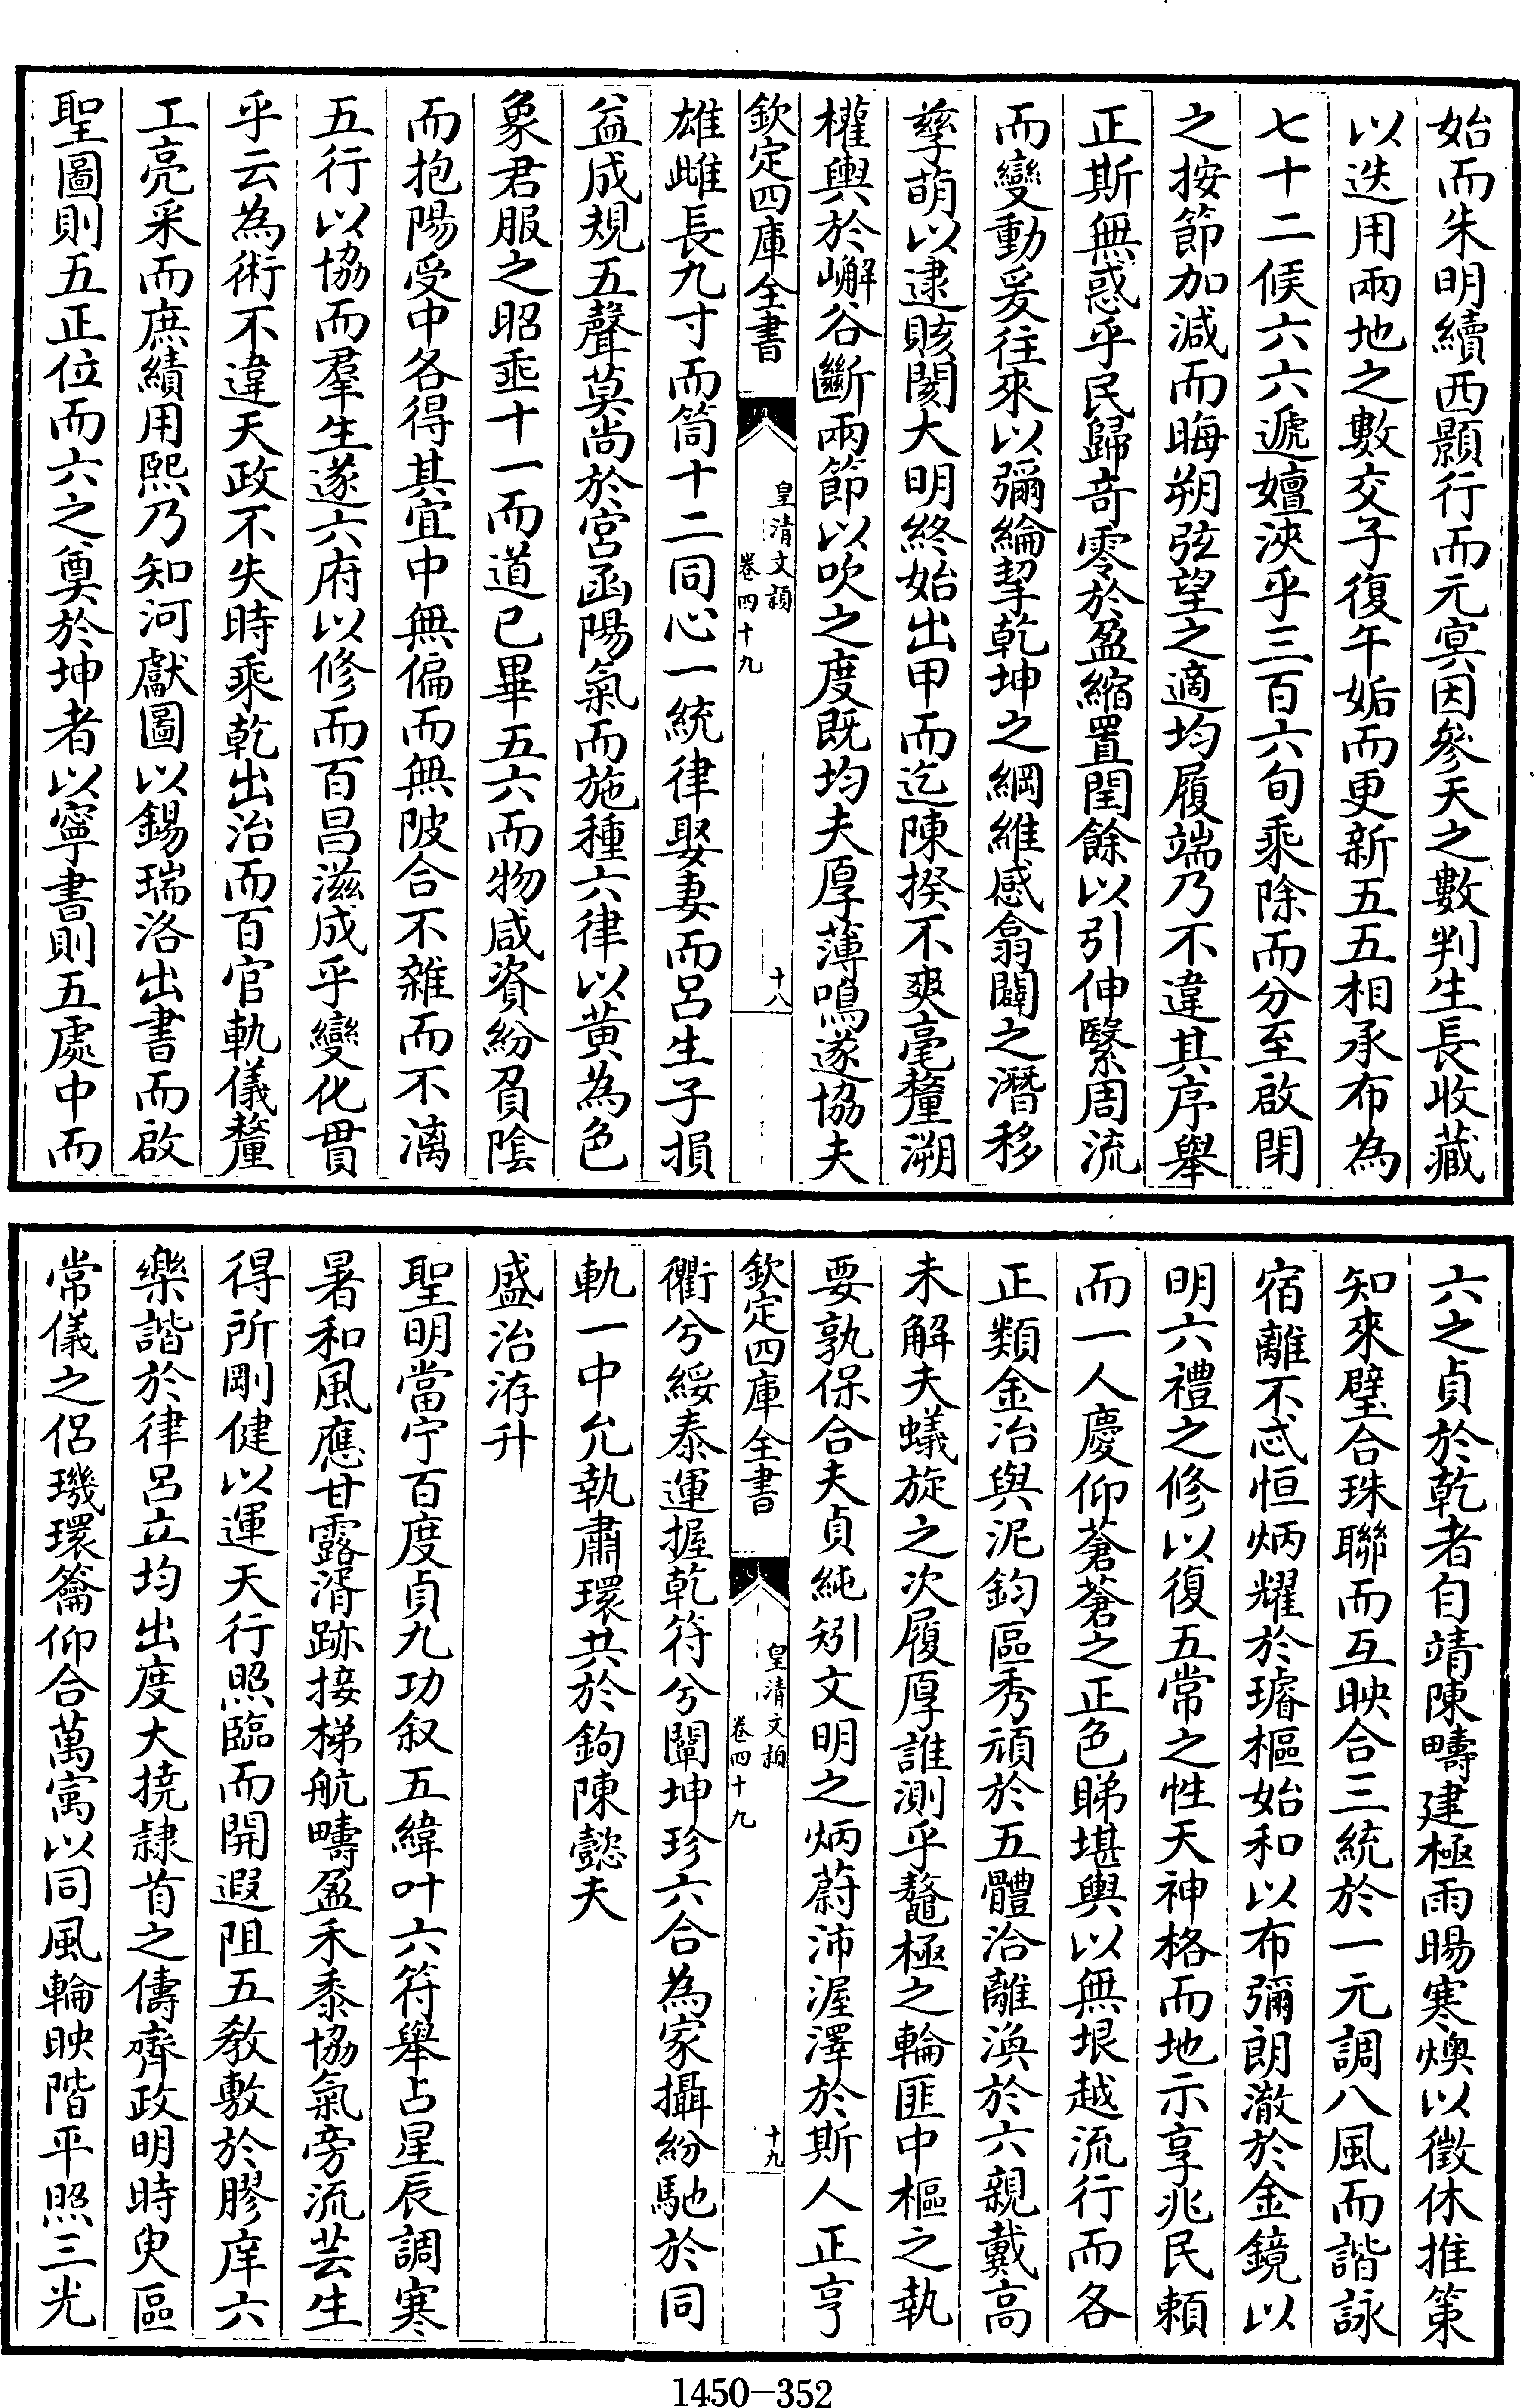 始而朱明續西顥行而元㝠因參天之數判生長收藏
以迭用兩地之數交子復午姤而更新五五相承布為
七十二候六六遞嬗浹乎三百六旬乘除而分至啟閉
之按節加減而晦朔弦望之適均履端乃不違其序舉
正斯無惑乎民歸奇零於盈縮置閏餘以引伸繄周流
而變動爰往來以彌綸挈乾坤之綱維感翕闢之潛移
孳萌以逮賅閡大明終始出甲而迄陳揆不爽毫釐溯
權輿於嶰谷斷兩節以吹之度既均夫厚薄鳴遂協夫
欽定四庫全書
皇清文頴
卷四十九
十八
雄雌長九寸而筒十二同心一統律娶妻而呂生子損
益成規五聲莫尚於宮函陽氣而施種六律以黃為色
象君服之昭垂十一而道已畢五六而物咸資紛負陰
而抱陽受中各得其宜中無偏而無陂合不雜而不漓
五行以協而羣生遂六府以修而百昌滋成乎變化貫
乎云為術不違天政不失時乘乾出治而百官軌儀釐
工亮采而庶績用熙乃知河獻圖以錫瑞洛出書而啟
聖圖則五正位而六之奠於坤者以寧書則五處中而
六之貞於乾者自靖陳疇建極雨暘寒燠以徵休推策
知來璧合珠聯而互映合三統於一元調八風而諧詠
宿離不忒恒炳耀於璿樞始和以布彌朗澈於金鏡以
明六禮之修以復五常之性天神格而地示享兆民賴
而一人慶仰蒼蒼之正色睇堪輿以無垠越流行而各
正類金冶與泥鈞區秀頑於五體洽離渙於六親戴高
未解夫蟻旋之次履厚誰測乎鼇極之輪匪中樞之執
要孰保合夫貞純矧文明之炳蔚沛渥澤於斯人正亨
欽定四庫全書
皇清文頴
卷四十九
十九
衢兮綏泰運握乾符兮闡坤珍六合為家攝紛馳於同
軌一中允執肅環共於鉤陳懿夫
盛治洊升
聖明當宁百度貞九功叙五緯叶六符舉占星辰調寒
暑和風應甘露湑跡接梯航疇盈禾黍協氣旁流芸生
得所剛健以運天行照臨而開遐阻五教敷於膠庠六
樂諧於律呂立均出度大撓隸首之儔齊政明時臾區
常儀之侶璣環籥仰合萬㝢以同風輪映階平照三光
1450-352